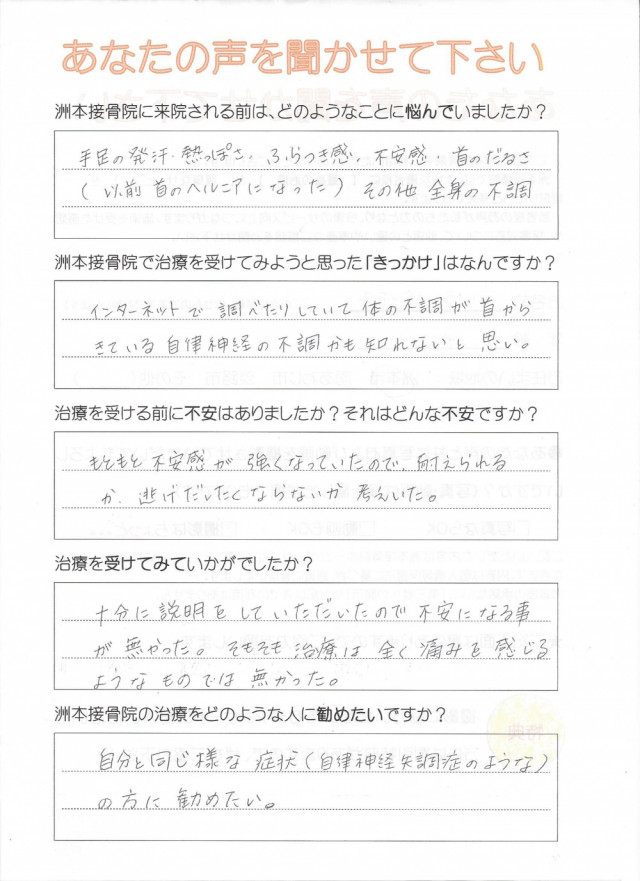 あなたの声を聞かせて下さい
洲本接骨院に来院される前は、どのようなことに悩んでいましたか？
手足の発汗・熱っぽさ・ふらつき感・不安感・首のだるさ
（以前首のヘルニアになった）その他 全身の不調
洲本接骨院で治療を受けてみようと思った「きっかけ」はなんですか？
インターネットで調べたりしていて体の不調が首から
きている自律神経の不調かも知れないと思い。
治療を受ける前に不安はありましたか？それはどんな不安ですか？
もともと不安感が強くなっていたので、耐えられる
か、逃げだしたくならないか考えいた。
治療を受けてみていかがでしたか？
十分に説明をしていただいたので不安になる事
が無かった。そもそも治療は全く痛みを感じる
ようなものでは無かった。
洲本接骨院の治療をどのような人に勧めたいですか？
自分と同じ様な症状（自律神経失調症のような）
の方に勧めたい。
特典